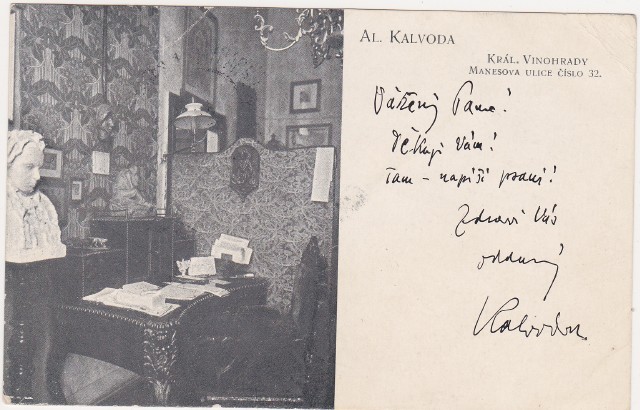 AL. KALVODA
KRÁL. VINOHRADY
MANESOVA ULICE ČÍSLO 32.
Vážený Pane!
Děkuji Vám!
Tam – napíši psaní!
Zdraví Vás
oddaný
Kalvoda